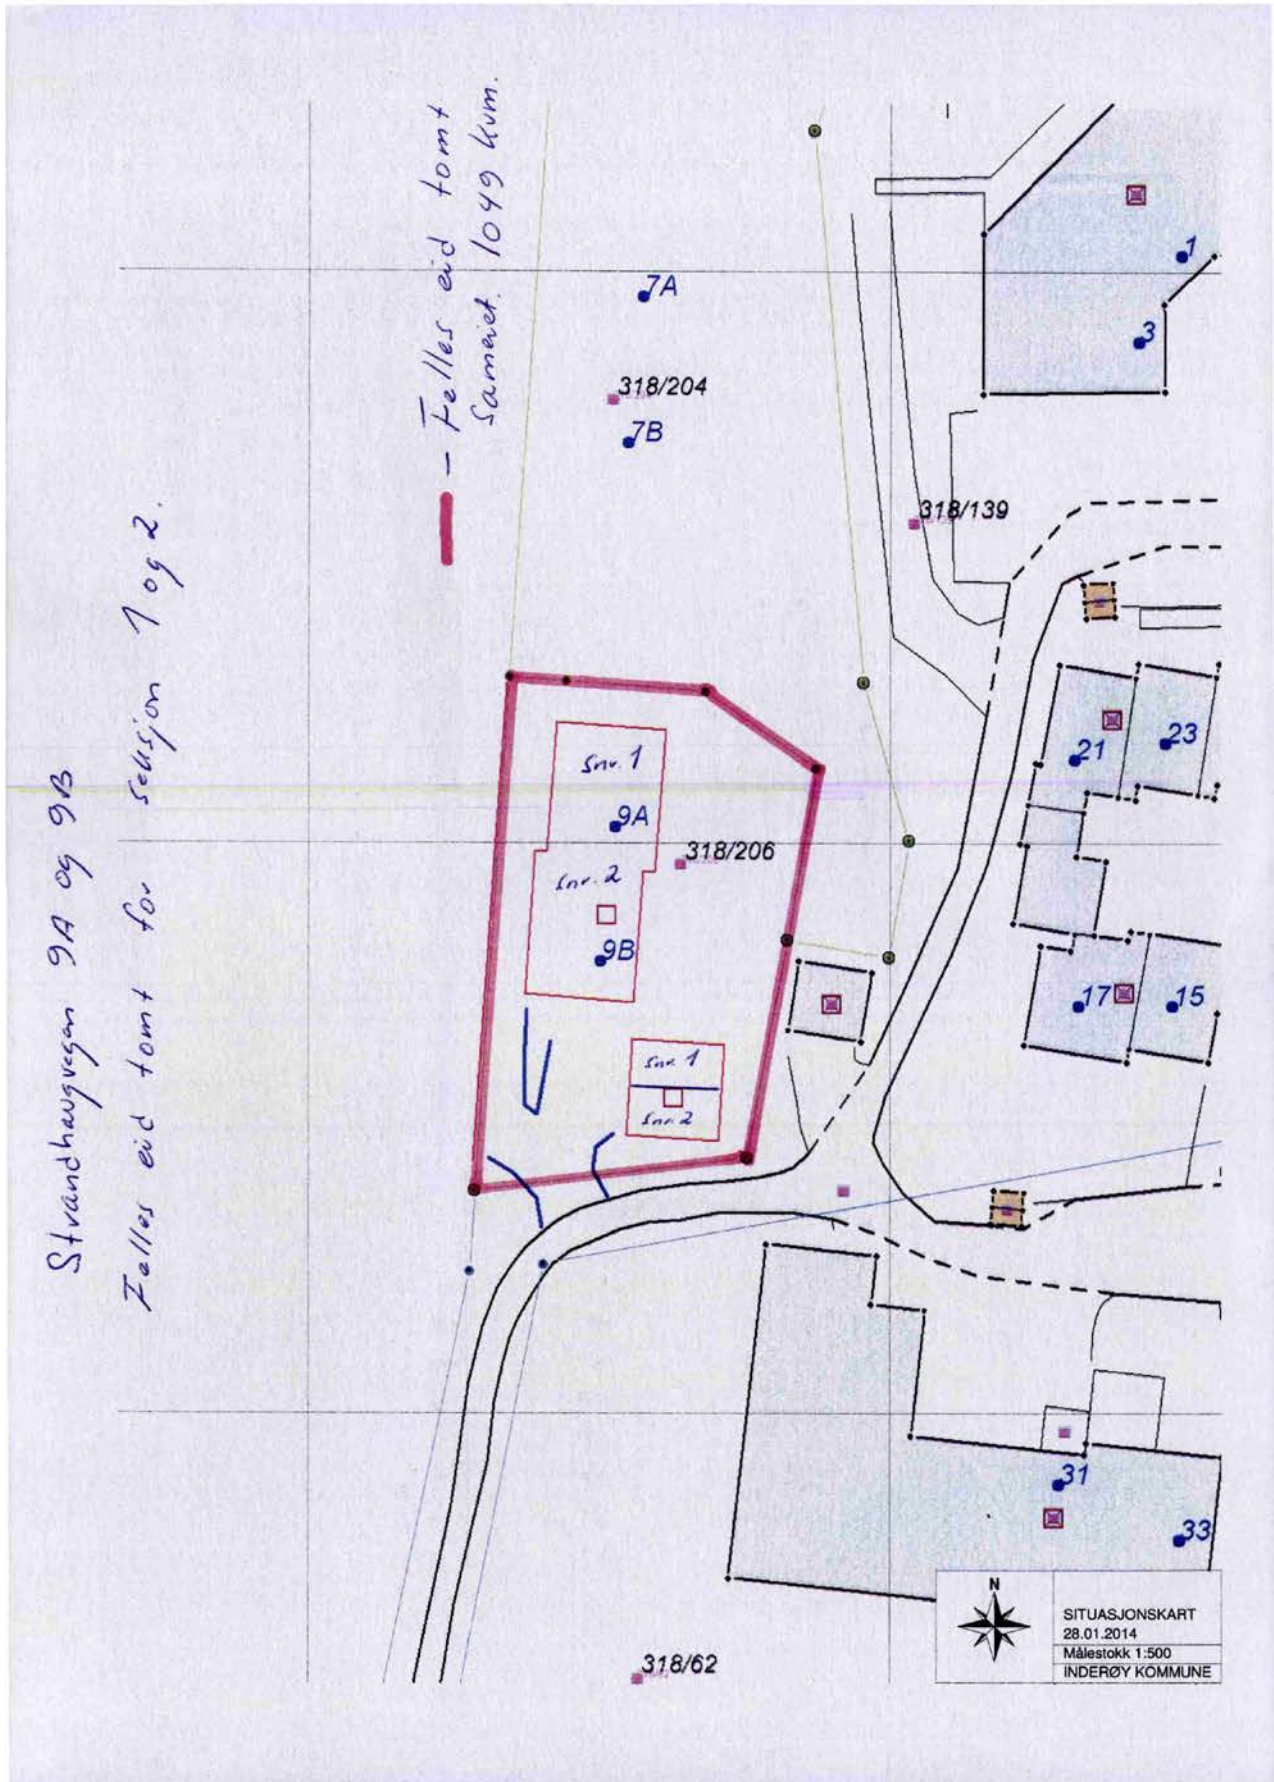 Strandhaugvegen 9A og 9B
Felles eid tomt for seksjon 1 og 2.
— Felles eid tomt
Sameiet. 1049 kvm.
7A
318/204
7B
1
3
318/139
Snr. 1
9A
318/206
Snr. 2
9B
Snr. 1
Snr. 2
21
23
17
15
31
33
318/62
N
SITUASJONSKART
28.01.2014
Målestokk 1:500
INDERØY KOMMUNE